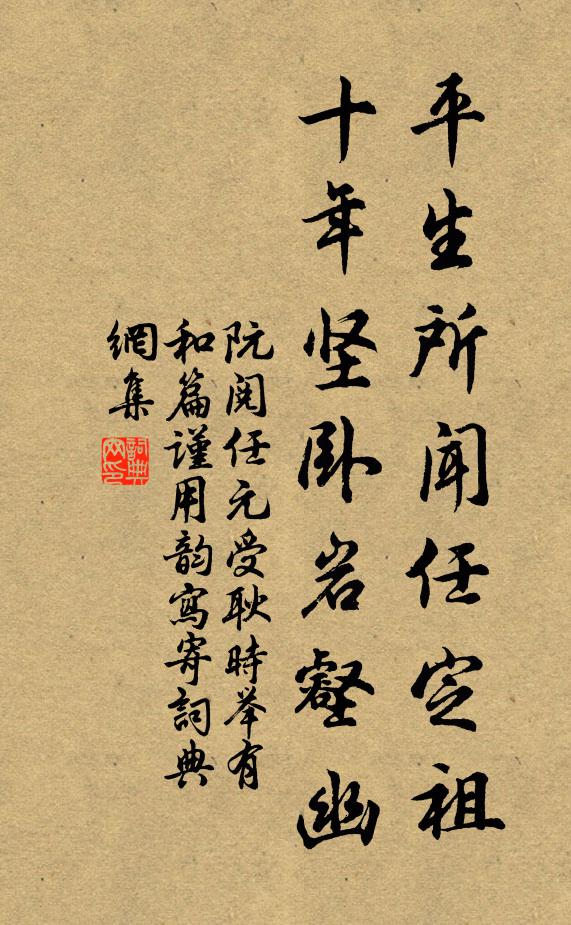 平生所闻任定祖
十年坚卧岩壑幽
阮阅任元受耿時举有
和篇谨用韵寫寄詞典
網集
詞典网印